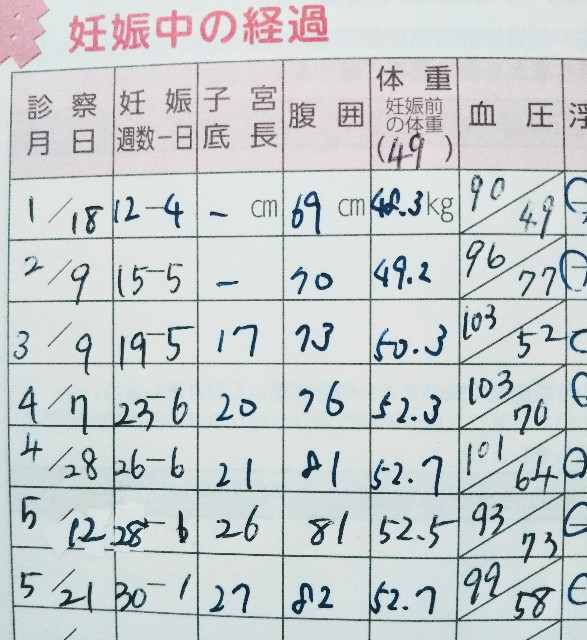 妊娠中の経過
診察月日 妊娠週数-日 子宮底長 腹囲 体重 妊娠前の体重 (49) 血圧 浮
1/18 12-4 - cm 69 cm 48.3kg 90/49
2/9 15-5 - 70 49.2 96/77
3/9 19-5 17 73 50.3 103/52
4/7 23-6 20 76 52.3 103/70
4/28 26-6 21 81 52.7 101/64
5/12 28-6 26 81 52.5 93/73
5/21 30-1 27 82 52.7 99/58